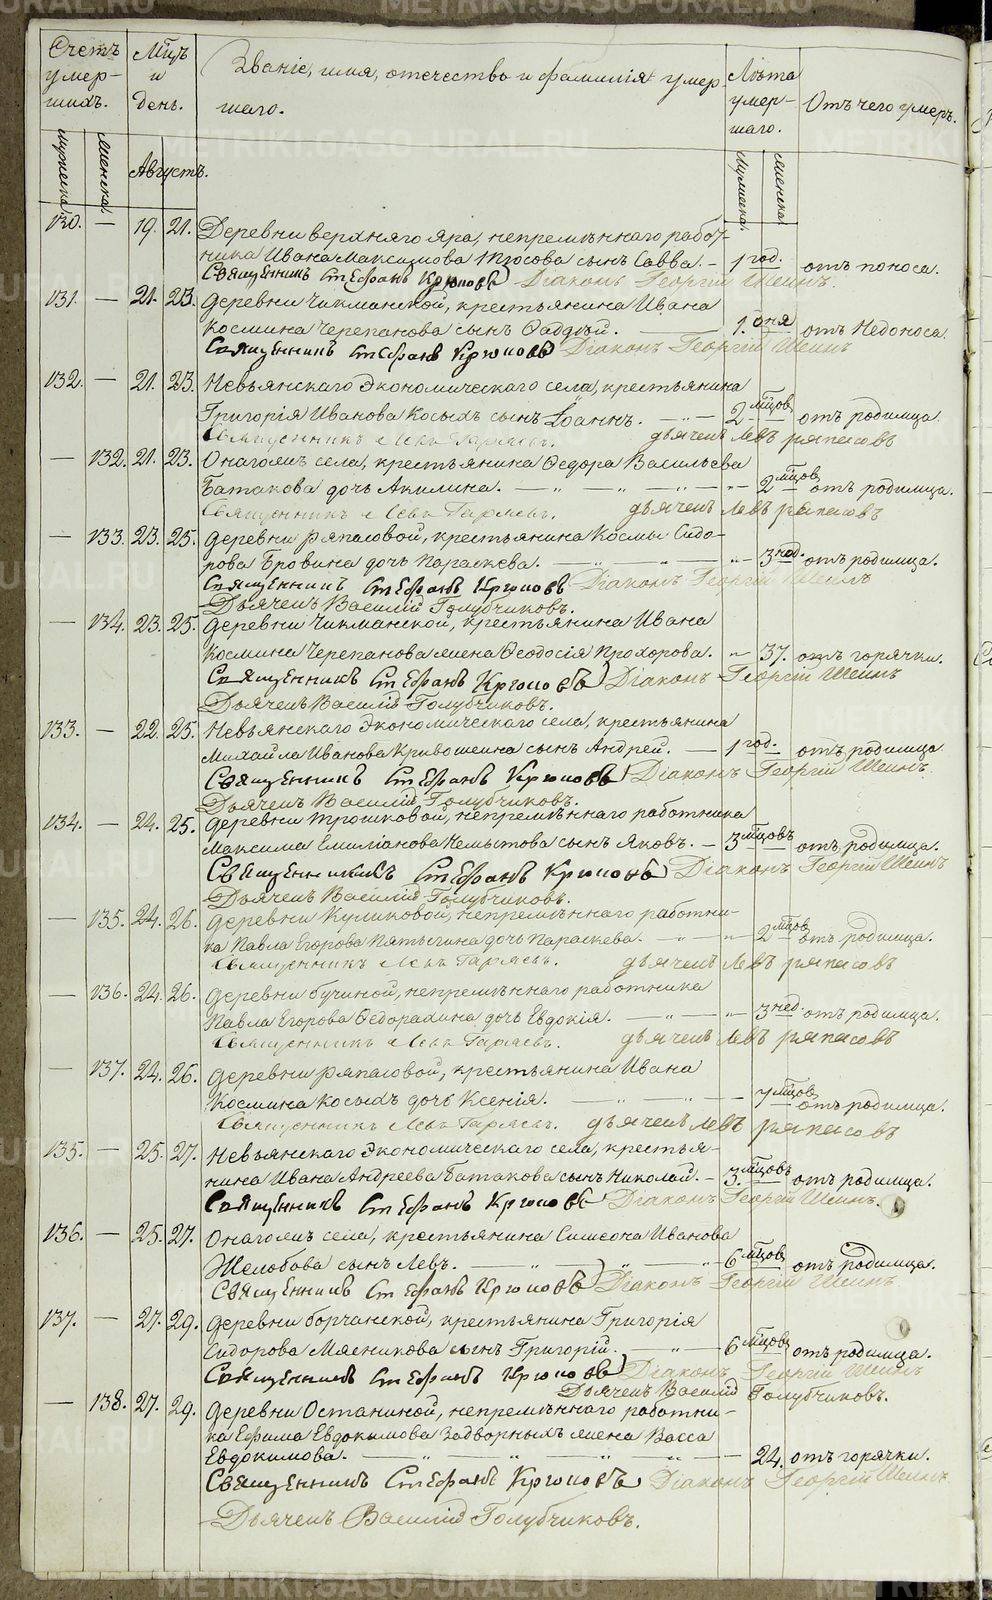 Счетъ умер-
шихъ.
Мѣсцъ и день.
Званіе, имя, отечество и фамилія умер-
шаго.
Лѣта умер-
шаго.
Отъ чего умеръ.
мужеска. женска. Августъ. мужеска. женска.
130. — 19. 21. Деревни верхняго Яра, непремѣннаго работ-
ника Ивана Максимова сынъ Савва. — 1 год. отъ поноса.
Священникъ Стефанъ Крюковъ Діаконъ Георгій Шеинъ.
131. — 21. 23. Деревни Чикманской, крестьянина Ивана
Космина Черепанова сынъ Фаддѣй. — 1. дня отъ Недоноса.
Священникъ Стефанъ Крюковъ Діаконъ Георгій Шеинъ
132. — 21. 23. Невьянскаго Экономическаго села, крестьянина
Григорія Иванова Косыхъ сынъ Іоаннъ. — „ — 2 мѣсцов отъ родимца.
Священникъ Левъ Гаряевъ. дьячекъ Левъ ряпасовъ
— 132. 21. 23. Онагожъ села, крестьянина Ѳедора Васильева
Батакова дочь Акилина. — „ — „ — „ — 2 мѣсцов отъ родимца.
Священникъ Левъ Гаряевъ. дьячекъ Левъ ряпасовъ
— 133. 23. 25. Деревни ряпасовой, крестьянина Космы Сидо-
рова Бровина дочь Параскева. — „ 3 нед. отъ родимца.
Священникъ Стефанъ Крюковъ Діаконъ Георгій Шеинъ
Дьячекъ Василій Голубчиковъ.
— 134. 23. 25. Деревни Чикманской, крестьянина Ивана
Космина Черепанова жена Ѳеодосія Прохорова. „ 37. отъ горячки.
Священникъ Стефанъ Крюковъ Діаконъ Георгій Шеинъ
Дьячекъ Василій Голубчиковъ.
133. — 22. 25. Невьянскаго Экономическаго села, крестьянина
Михайла Иванова Кривошеина сынъ Андрей. — 1 год. отъ родимца
Священникъ Стефанъ Крюковъ Діаконъ Георгій Шеинъ.
Дьячекъ Василій Голубчиковъ.
134. — 24. 25. Деревни Трошковой, непремѣннаго работника
Максима Емиліанова сынъ Яковъ. — 3 мѣсцовъ отъ родимца.
Священникъ Стефанъ Крюковъ Діаконъ Георгій Шеинъ
Дьячекъ Василій Голубчиковъ.
— 135. 24. 26. Деревни Куликовой, непремѣннаго работни-
ка Павла Егорова Пятыгина дочь Параскева. — „ — „ 2 мѣсцов отъ родимца.
Священникъ Левъ Гаряевъ. дьячекъ Левъ ряпасовъ
— 136. 24. 26. Деревни бучиной, непремѣннаго работника
Павла Егорова Ѳедорахина дочь Евдокія. — „ — „ 3 нед. отъ родимца.
Священникъ Левъ Гаряевъ. дьячекъ Левъ ряпасовъ
— 137. 24. 26. Деревни ряпасовой, крестьянина Ивана
Космина Косыхъ дочь Ксенія. — „ — „ — 7 мѣсцов отъ родимца.
Священникъ Левъ Гаряевъ. дьячекъ Левъ ряпасовъ
135. — 25. 27. Невьянскаго Экономическаго села, крестья-
нина Ивана Андреева Батакова сынъ Николай. — 3. мѣсцовъ отъ родимца.
Священникъ Стефанъ Крюковъ Діаконъ Георгій Шеинъ.
136. — 25. 27. Онагожъ села, крестьянина Симеона Иванова
Желобова сынъ Левъ. — „ — „ — „ 6 мѣсцов отъ родимца.
Священникъ Стефанъ Крюковъ Діаконъ Георгій Шеинъ
137. — 27. 29. Деревни борчанской, крестьянина Григорія
Сидорова Мясникова сынъ Григорій. — „ — 6 мѣсцовъ отъ родимца.
Священникъ Стефанъ Крюковъ Діаконъ Георгій Шеинъ
Дьячекъ Василій Голубчиковъ.
— 138. 27. 29. Деревни Останиной, непремѣннаго работни-
ка Ефима Евдокимова Задворныхъ жена Васса
Евдокимова. — „ — „ — „ — 24. отъ горячки.
Священникъ Стефанъ Крюковъ Діаконъ Георгій Шеинъ
Дьячекъ Василій Голубчиковъ.
METRIKI.GASO-URAL.RU